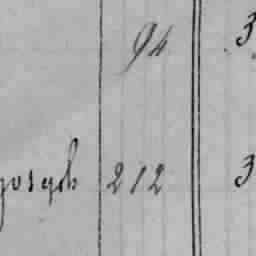 94 3
Joseph 212 3